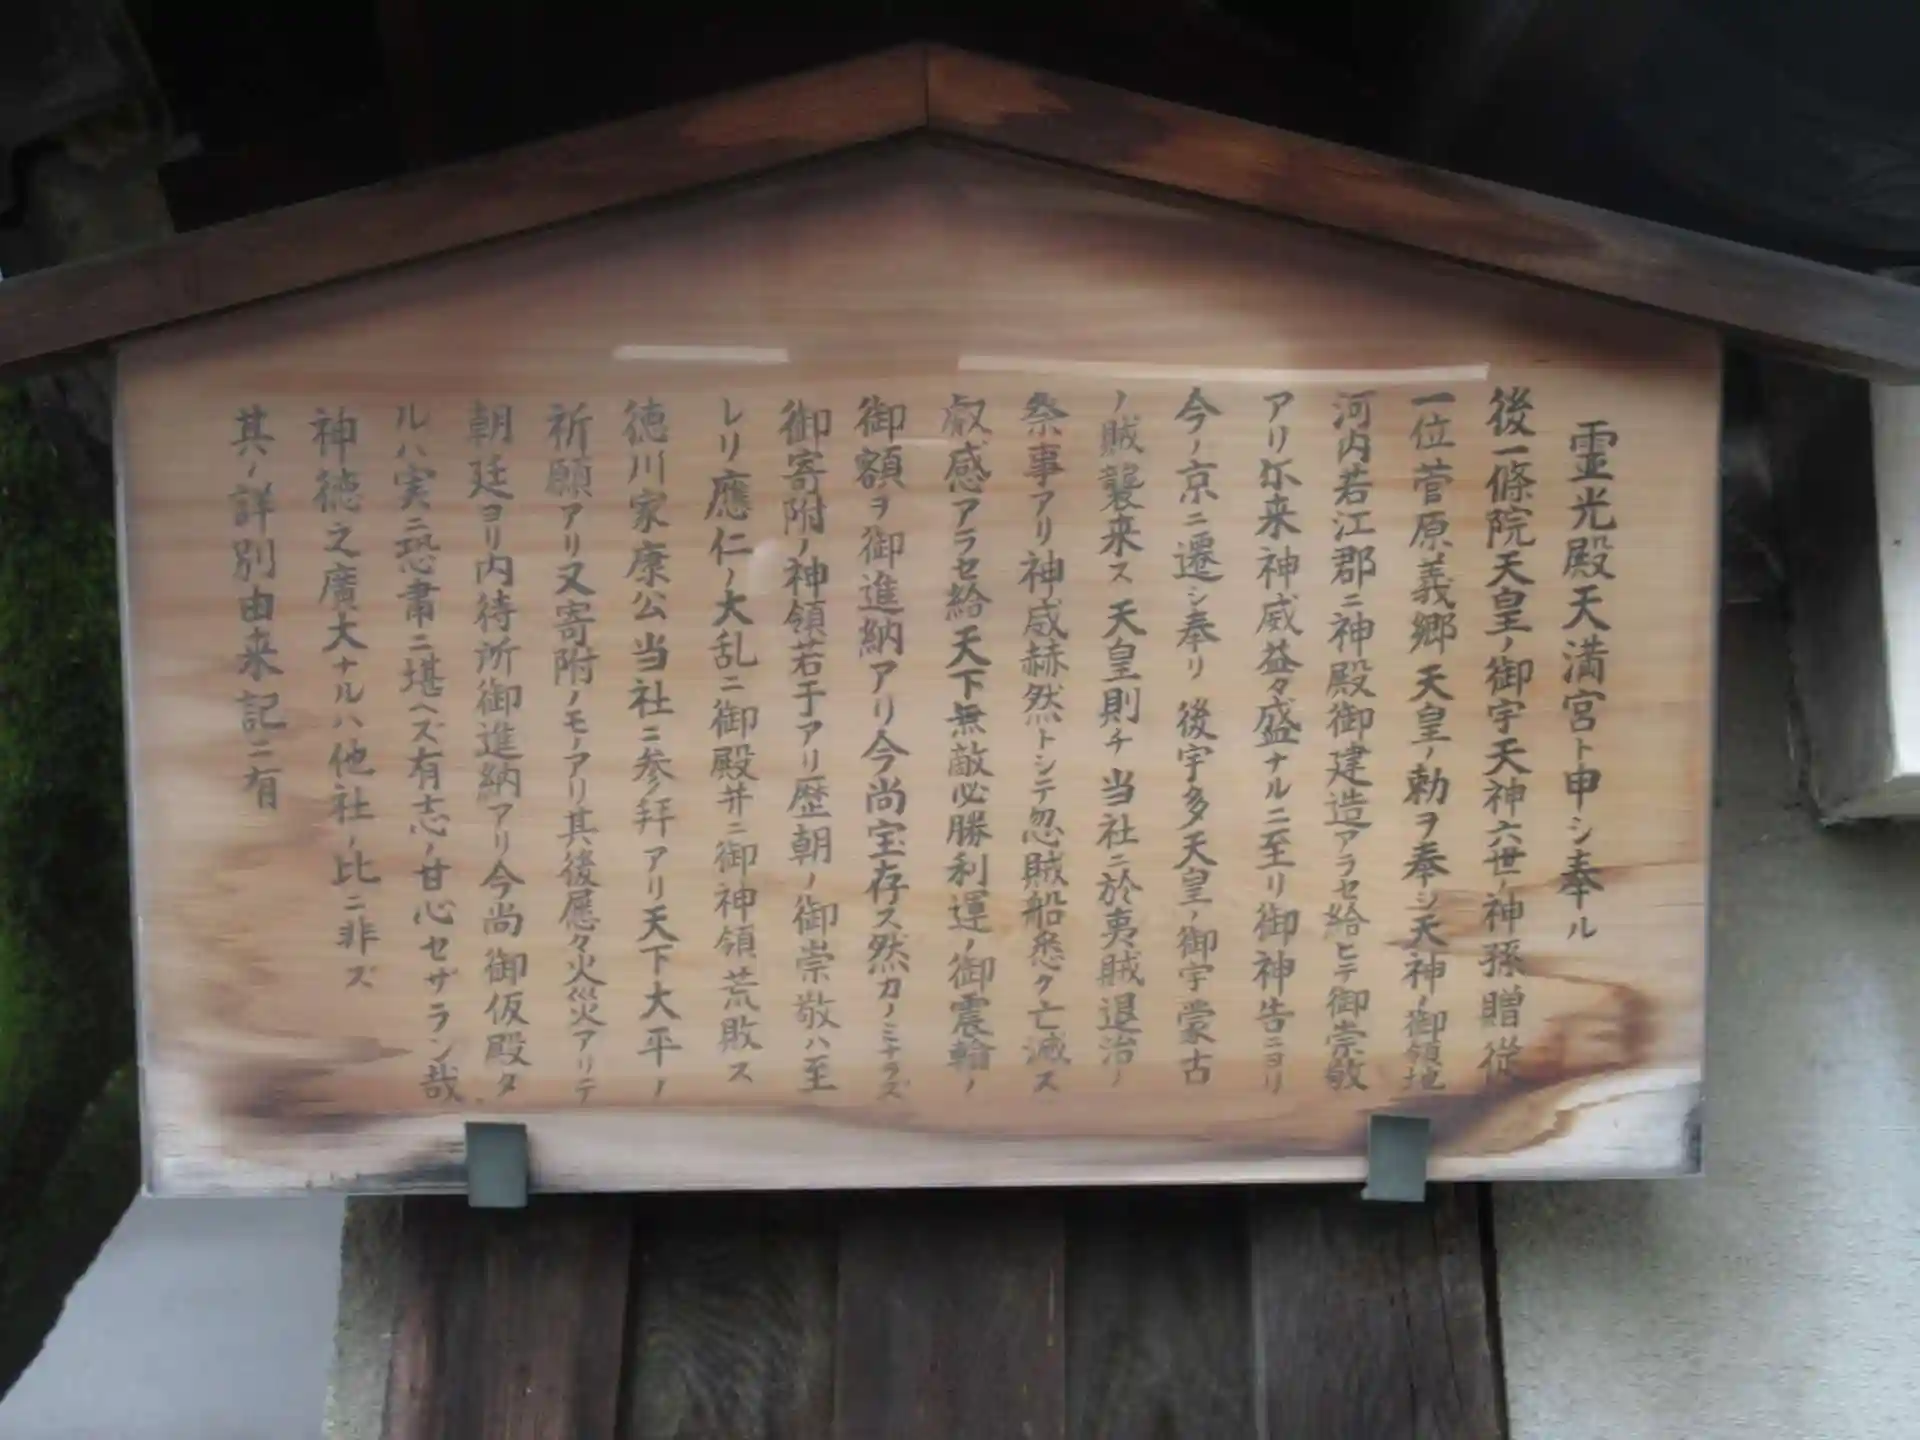 霊光殿天満宮ト申シ奉ル
後一條院天皇ノ御宇天神六世ノ神孫贈従
一位菅原義郷天皇ノ勅ヲ奉シ天神ノ御領地
河内若江郡ニ神殿御建造アラセ給ヒテ御崇敬
アリ尓来神威益々盛ナルニ至リ御神告ニヨリ
今ノ京ニ遷シ奉リ後宇多天皇ノ御宇蒙古
ノ賊襲来ス天皇則チ当社ニ於夷賊退治ノ
祭事アリ神威赫然トシテ忽賊船悉ク亡滅ス
叡感アラセ給天下無敵必勝利運ノ御震翰ノ
御額ヲ御進納アリ今尚宝存ス然カノミナラズ
御寄附ノ神領若干アリ歴朝ノ御崇敬ハ至
レリ應仁ノ大乱ニ御殿并ニ御神領荒敗ス
徳川家康公当社ニ参拝アリ天下大平ノ
祈願アリ又寄附ノモノアリ其後屡々火災アリテ
朝廷ヨリ内待所御進納アリ今尚御仮殿タ
ルハ実ニ恐粛ニ堪ヘズ有志ノ甘心セザラン哉
神徳之廣大ナルハ他社ノ比ニ非ズ
其ノ詳別由来記ニ有